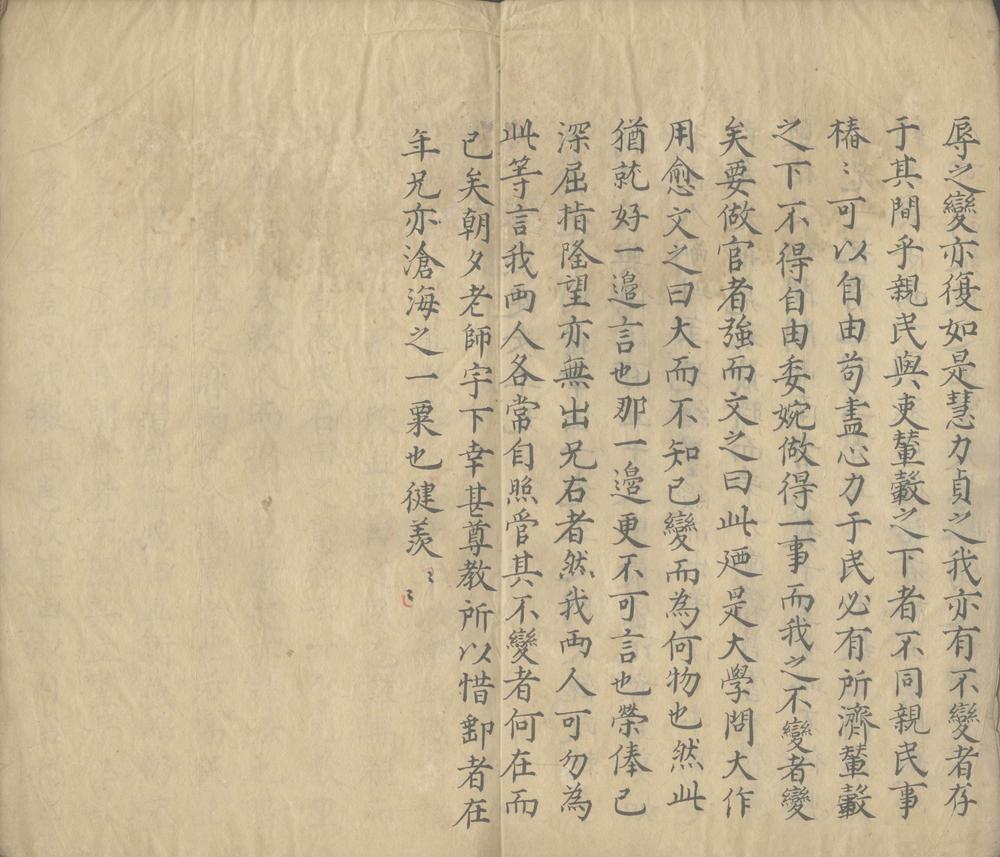 辱之變亦復如是慧力貞之我亦有不變者存
于其間乎親民與吏輦轂之下者不同親民事
樁〻可以自由苟盡心力于民必有所濟輦轂
之下不得自由委婉做得一事而我之不變者變
矣要做官者強而文之曰此廼是大學問大作
用愈文之曰大而不知已變而為何物也然此
猶就好一邉言也那一邉更不可言也榮俸已
深屈指隆望亦無出兄右者然我兩人可勿為
此等言我兩人各常自照管其不變者何在而
已矣朝夕老師宇下幸甚尊教所以惜鄞者在
年兄亦滄海之一粟也健羡〻〻